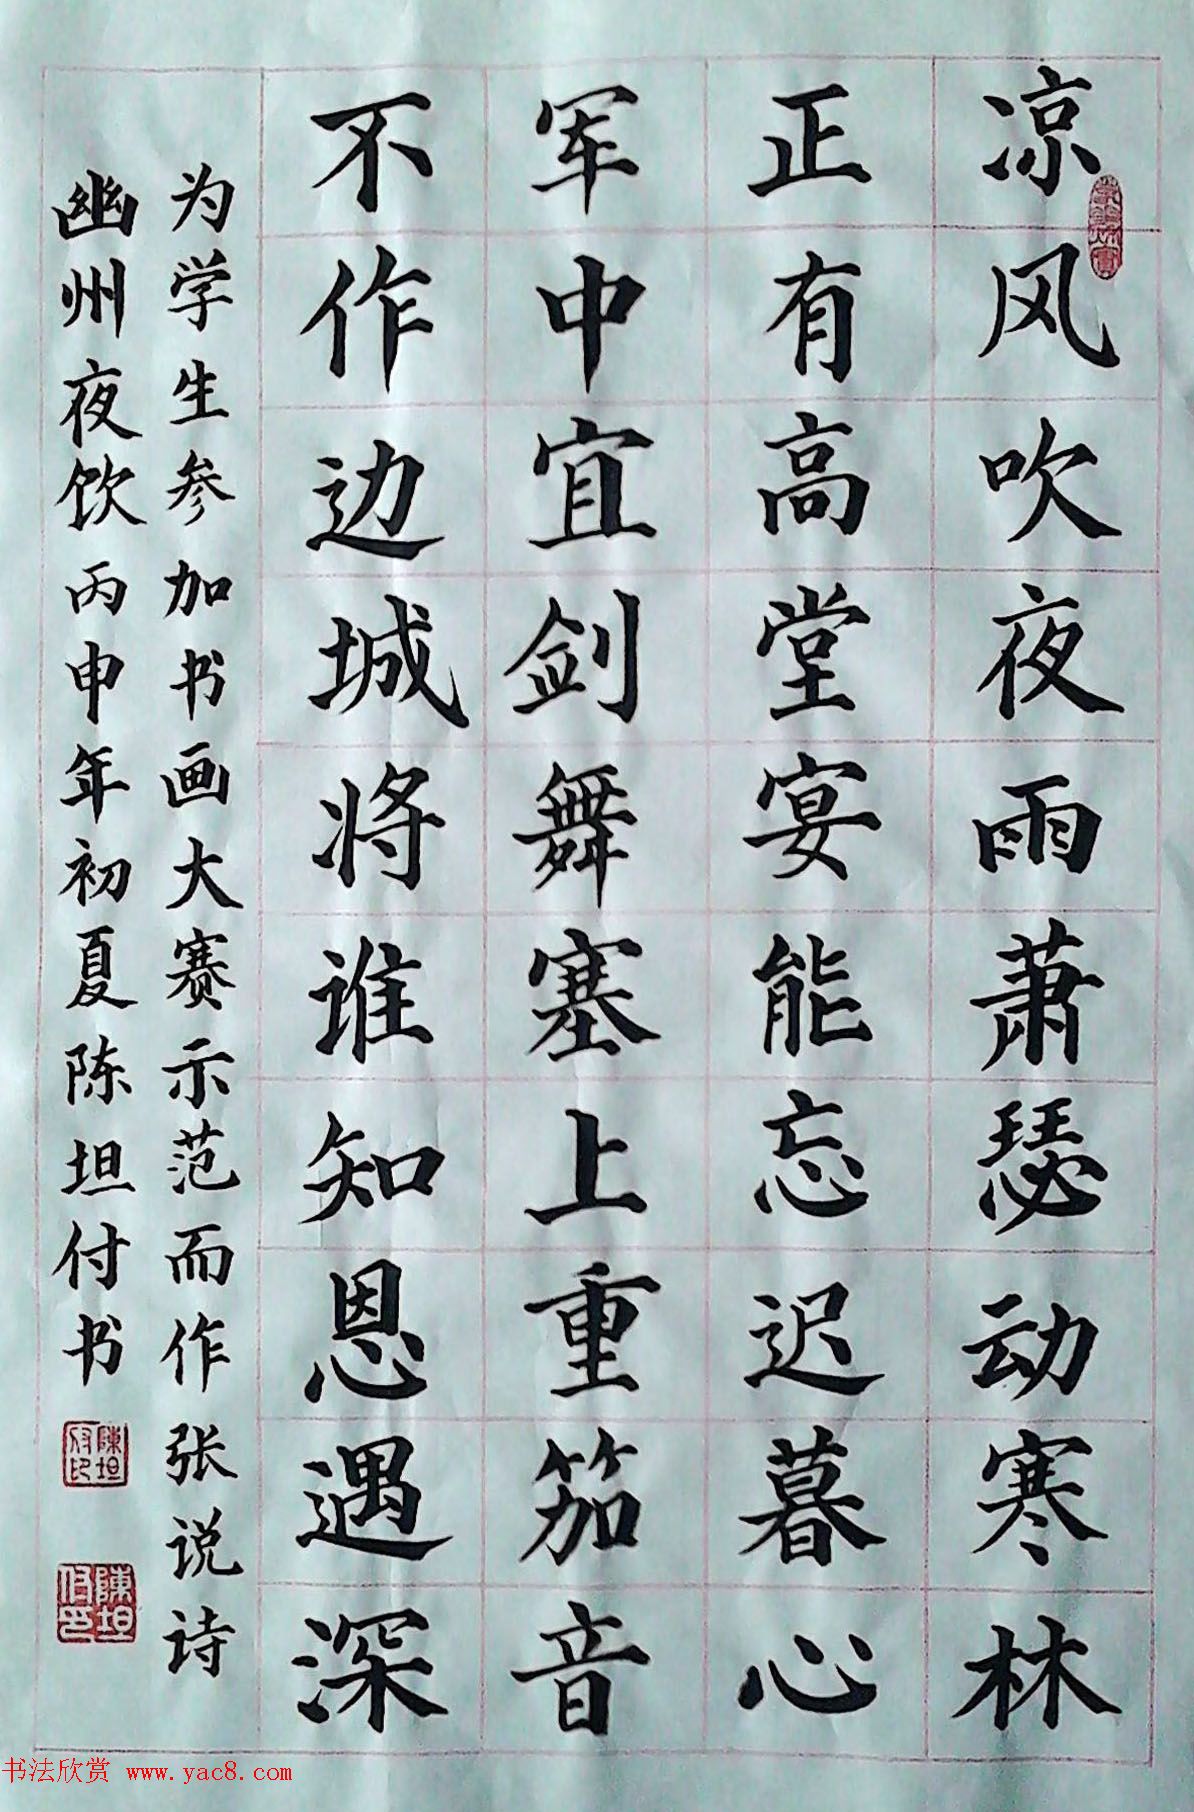 凉风吹夜雨萧瑟动寒林
正有高堂宴能忘迟暮心
军中宜剑舞塞上重笳音
不作边城将谁知恩遇深
为学生参加书画大赛示范而作张说诗
幽州夜饮丙申年初夏陈坦付书
陳坦付印
陳坦付印
书法欣赏 www.yac8.com